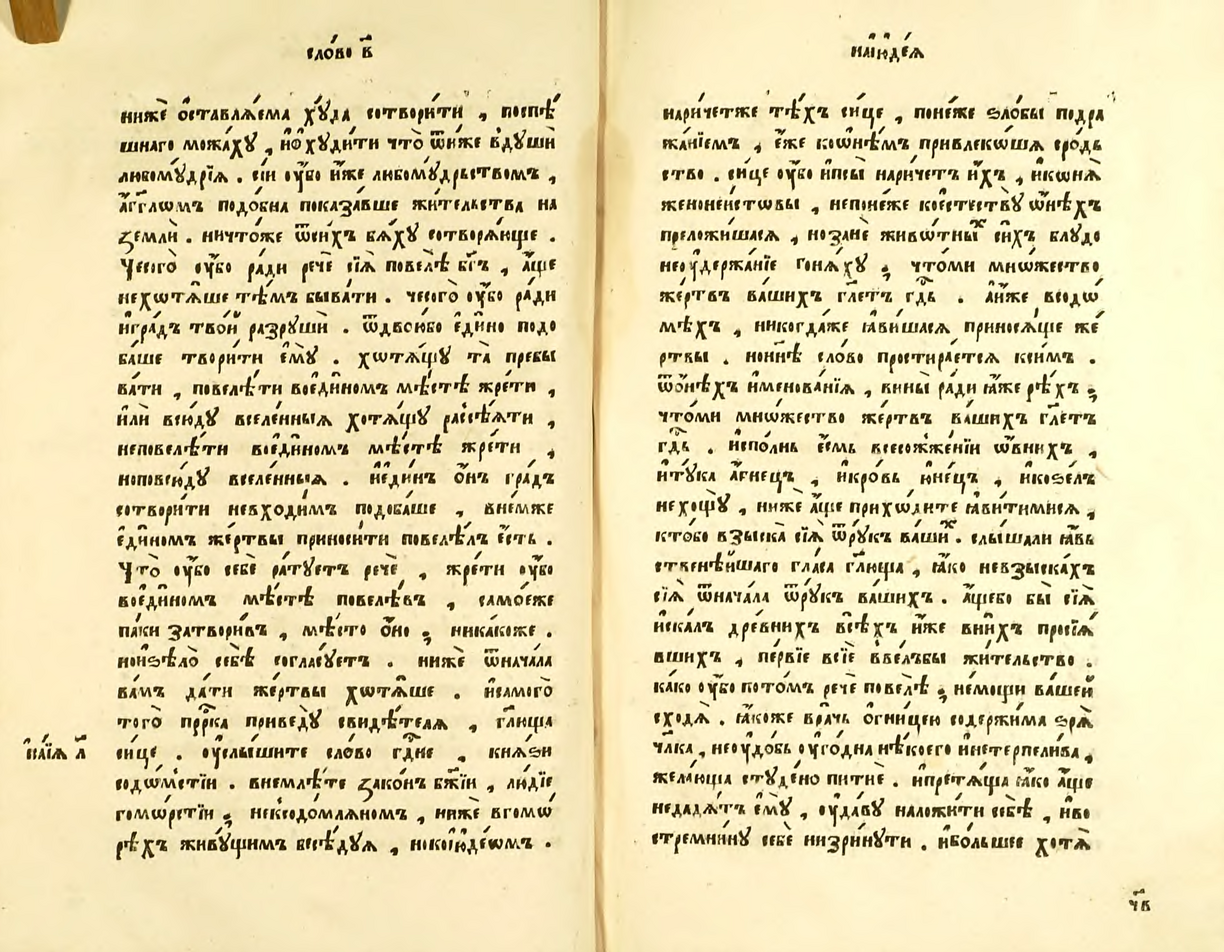 сло́во в҃
нижѐ ѡ҆ставлѧ́ема хꙋ́да сотвори́ти , поспѣ́
шнаго можахꙋ , и҆ѳхꙋди́ти что̀ ѿни́же в̾дꙋшѝ
любомꙋ́дрїѧ . сїѝ ᲂу҆̀бо и҆̀же любомꙋ́дрьствомъ ,
а҆́гг҃лѡмъ подо́бна показа́вше жи́тельства на
землѝ . ничто́же ѿси́хъ бѧ́хꙋ сотворѧ́юще .
Чесого̀ ᲂу҆̀бо ра́ди речѐ сїѧ̀ повелѣ̀ бг҃ъ , а҆́ще
нехѡтѧ́ше тѣ́мъ быва́ти . чесого̀ ᲂу҆̀бо ра́ди
и҆гра́дъ тво́й разрꙋшѝ . ѿдвою́бо є҆ди́но подо
ба́ше твори́ти є҆мꙋ̀ . хѡтѧ́щꙋ та̀ пребы
ва́ти , повелѣ́ти воє҆ди́номъ мѣ́стѣ жре́ти ,
и҆лѝ всю́дꙋ вселе́нныѧ хотѧ́щꙋ разсѣ́ѧти ,
неповелѣ́ти воє҆ди́номъ мѣ́стѣ жре́ти ,
ноповсю́дꙋ вселе́нныѧ . и҆є҆ди́нъ ѻ҆́нъ гра́дъ
сотвори́ти невхо́димъ подоба́ше , вне́мже
є҆ди́номъ же́ртвы приноси́ти повелѣ́лъ є҆́сть .
Что̀ ᲂу҆̀бо себѐ ра́тꙋетъ речѐ , жре́ти ᲂу҆̀бо
воє҆ди́номъ мѣ́стѣ повелѣ́въ , самоє́же
па́ки затвори́въ , мѣ́сто ѻ҆́но ; ника́коже .
ноиѕѣлѡ̀ себѣ̀ согла́сꙋетъ . нижѐ ѿнача́ла
ва́мъ да́ти же́ртвы хѡтѧ́ше . и҆самого̀
того̀ прⷪ҇рка приведꙋ̀ свидѣ́телѧ , гл҃юща
и҆са́їѧ а҃
си́це . ᲂу҆слы́шите сло́во гдⷭ҇не , кнѧ́ѕи
содѡ́мстїи . внемлѣ́те зако́нъ бж҃їи , лю́дїе
гомѡ́рстїи ; некксодо́млѧномъ , нижѐ вгомѡ́
рѣхъ живꙋ́щимъ весѣ́дꙋѧ , нокоїю҆де́ѡмъ .
наїю҆де́ѧ
нарице́тже тѣ́хъ си́це , поне́же ѕло́бы подра
жа́нїемъ , є҆́же коѡ҆нѣ́мъ привлеко́шѧ сро́дь
ство . си́це ᲂу҆̀бо и҆псы̀ нарице́тъ и҆́хъ , и҆ко́нѧ
женоне́истѡвы , непоне́же коєстествꙋ̀ ѡ҆нѣ́хъ
преложи́шасѧ , но занѐ живѡ́тныⷯ си́хъ блꙋ́до
неᲂу҆держа́нїе гонѧ́хꙋ ; что́ми мно́жество
же́ртвъ ва́шихъ гл҃етъ гдⷭ҇ь . а҆и҆̀же всодѡ́
мѣхъ , никогда́же ꙗ҆ви́шасѧ приносѧ́ще же́
ртвы . нони́нѣ сло́во простира́етсѧ ксни́мъ .
ѿѻ҆нѣ́хъ и҆менова́нїѧ , вины̀ ра́ди ꙗ҆́же рѣ́хъ ;
что́ми мно́жество же́ртвъ ва́шихъ гл҃етъ
гдⷭ҇ь . и҆спо́лнь є҆́смь всесожже́нїи ѡ҆́вннхъ ,
и҆тꙋ́ка а҆́гнецъ , и҆кро́вь ю҆не́цъ , и҆козе́лъ
нехощꙋ̀ , нижѐ а҆́ще прихо́дите ꙗ҆ви́тимисѧ ,
кто́бо взыска̀ сїѧ̀ ѿрꙋ́къ ва́шиⷯ . слы́шали ꙗ҆́вь
ственѣ́йшаго гла́са гл҃юща , ꙗ҆́ко невзыска́хъ
сїѧ̀ ѿнача́ла ѿрꙋ́къ ва́шихъ . а҆́щебо бы̀ сїѧ̀
и҆ска́лъ дре́внихъ всѣ́хъ и҆̀же вни́хъ просїѧ́
вшихъ , пе́рвїе всїѐ ввелъбы̀ жи́тельство .
ка́ко ᲂу҆̀бо пото́мъ речѐ повелѣ̀ ; не́мощи ва́шей
сходѧ̀ . ꙗ҆́коже вра́чь ѻ҆гни́цею содержи́ма зрѧ̀
чл҃ка , неᲂу҆до́бь ᲂу҆го́дна нѣ́коего и҆нетерпели́ва ,
жела́юща стꙋдено̀ питиѐ . и҆претѧ́ща ꙗ҆́ко а҆́ще
недадѧ́тъ є҆мꙋ̀ , ᲂу҆да́вꙋ наложи́ти себѣ̀ , и҆во
стремни́нꙋ себѐ низри́нꙋти . и҆бо́льшее хотѧ̀
чв҃